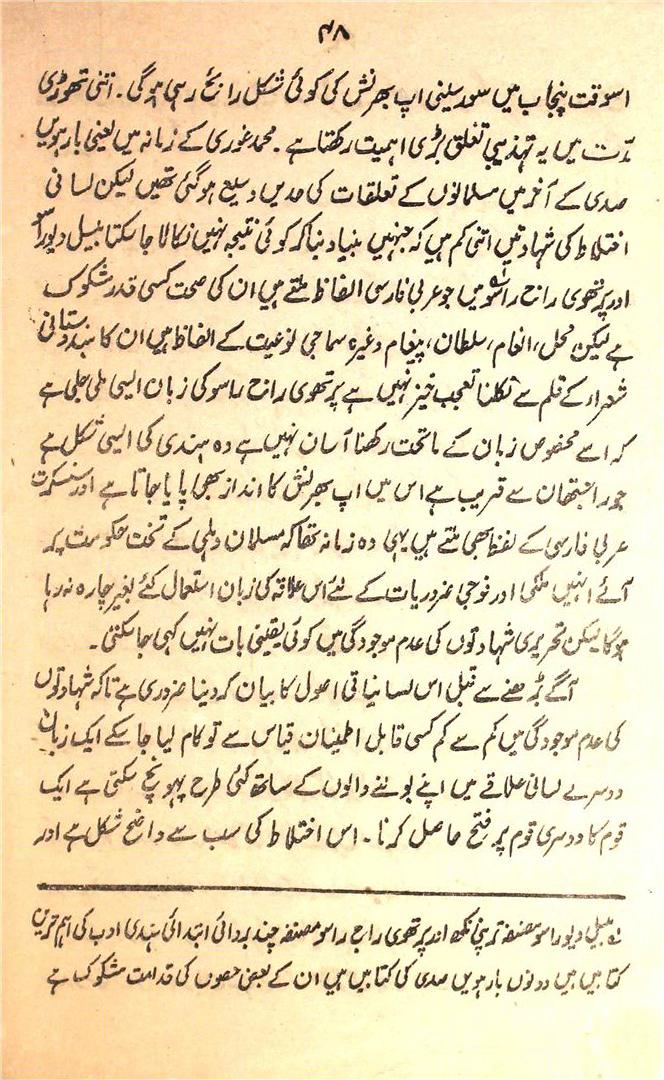 ۴۸
اسوقت پنجاب میں سورسینی اپ بھرنش کی کوئی شکل رائج رہی ہوگی۔ اتنی تھوڑی
مدّت میں یہ تہذیبی تعلق بڑی اہمیت رکھتا ہے۔ محمد غوری کے زمانہ میں یعنی بارہویں
صدی کے آخر میں مسلمانوں کے تعلقات کی حدیں وسیع ہوگئی تھیں لیکن لسانی
اختلاط کی شہادتیں اتنی کم ہیں کہ جنہیں بنیاد بنا کر کوئی نتیجہ نہیں نکالا جا سکتا بیسل دیوراسو
اور پرتھوی راج راسوؔ میں جو عربی فارسی الفاظ ملتے ہیں ان کی صحت کسی قدر مشکوک
ہے لیکن محل، انعام، سلطان، پیغام وغیرہ سماجی نوعیت کے الفاظ ہیں ان کا ہندوستانی
شعراء کے قلم سے نکلنا تعجب خیز نہیں ہے پرتھوی راج راسو کی زبان ایسی ملی جلی ہے
کہ اسے مخصوص زبان کے ماتحت رکھنا آسان نہیں ہے وہ ہندی کی ایسی شکل ہے
جو راجستھان سے قریب ہے اس میں اپ بھرنش کا انداز بھی پایا جاتا ہے اور سنسکرت
عربی فارسی کے لفظ بھی ملتے ہیں یہی وہ زمانہ تھا کہ مسلمان دہلی کے تخت حکومت پر
آئے انہیں ملکی اور فوجی ضروریات کے لئے اس علاقہ کی زبان استعمال کئے بغیر چارہ نہ رہا
ہوگا لیکن تحریری شہادتوں کی عدم موجودگی میں کوئی یقینی بات نہیں کہی جا سکتی۔
آگے بڑھنے سے قبل اس لسانیاتی اصول کا بیان کر دینا ضروری ہے تاکہ شہادتوں
کی عدم موجودگی میں کم سے کم کسی قابل اطمینان قیاس سے تو کام لیا جا سکے ایک زبان
دوسرے لسانی علاقے میں اپنے بولنے والوں کے ساتھ کئی طرح پہونچ سکتی ہے ایک
قوم کا دوسری قوم پر فتح حاصل کرنا۔ اس اختلاط کی سب سے واضح شکل ہے اور
بیسل دیوراسو مصنفہ نرپتی نلکھ اور پرتھوی راج راسو مصنفہ چند بردائی ابتدائی ہندی ادب کی اہم ترین
کتابیں ہیں دونوں بارہویں صدی کی کتابیں ہیں ان کے بعض حصوں کی قدامت مشکوک ہے